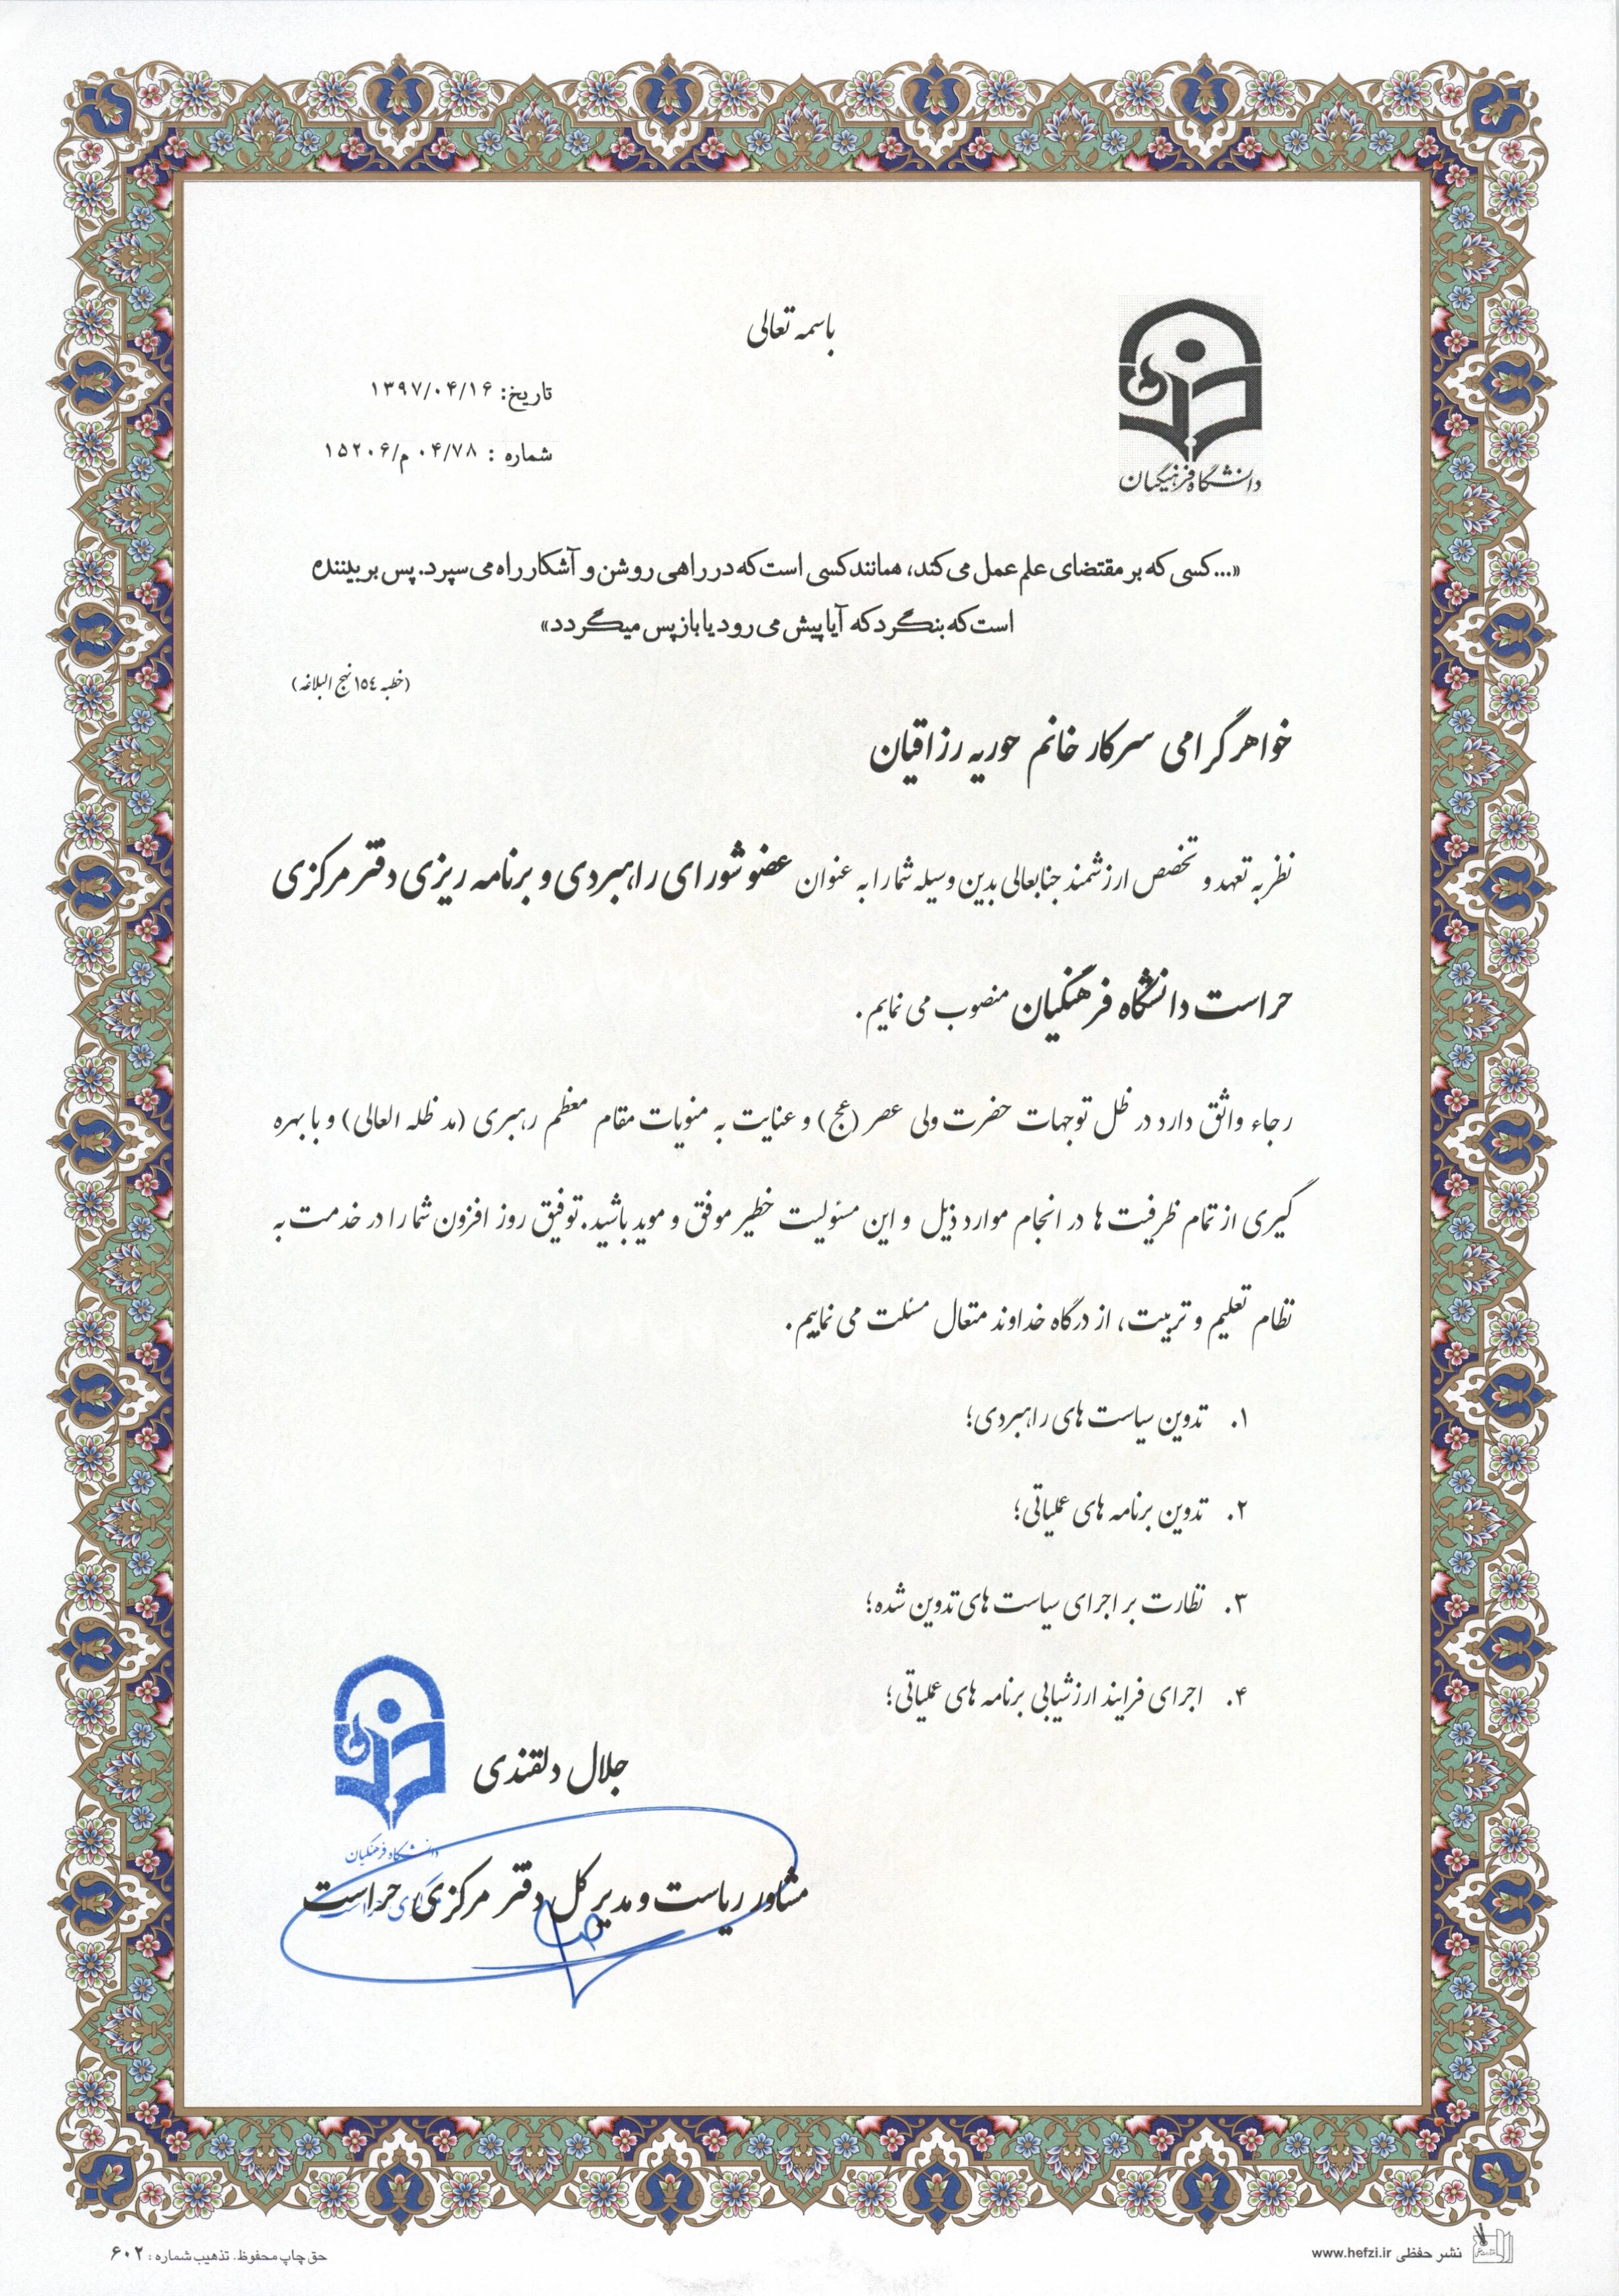 باسمه تعالی
تاریخ: ۱۳۹۷/۰۴/۱۶
شماره : ۰۴/۷۸ م/۱۵۲۰۶
دانشگاه فرهنگیان
«...کسی که بر مقتضای علم عمل می کند، همانند کسی است که در راهی روشن و آشکار راه می سپرد. پس بر بیننده
است که بنگرد که آیا پیش می رود یا باز پس میگردد»
(خطبه ١٥٤ نهج البلاغه)
خواهر گرامی سرکار خانم حوریه رزاقیان
نظر به تعهد و تخصص ارزشمند جنابعالی بدین وسیله شما را به عنوان عضو شورای راهبردی و برنامه ریزی دفتر مرکزی
حراست دانشگاه فرهنگیان منصوب می نمایم.
رجاء واثق دارد در ظل توجهات حضرت ولی عصر (عج) و عنایت به منویات مقام معظم رهبری (مد ظله العالی) و با بهره
گیری از تمام ظرفیت ها در انجام موارد ذیل و این مسئولیت خطیر موفق و موید باشید. توفیق روز افزون شما را در خدمت به
نظام تعلیم و تربیت، از درگاه خداوند متعال مسئلت می نماییم.
۱. تدوین سیاست های راهبردی؛
۲. تدوین برنامه های عملیاتی؛
۳. نظارت بر اجرای سیاست های تدوین شده؛
۴. اجرای فرایند ارزشیابی برنامه های عملیاتی؛
جلال دلقندی
دانشگاه فرهنگیان
مشاور ریاست و مدیر کل دفتر مرکزی حراست
حق چاپ محفوظ. تذهیب شماره : ۶۰۲
نشر حفظی www.hefzi.ir